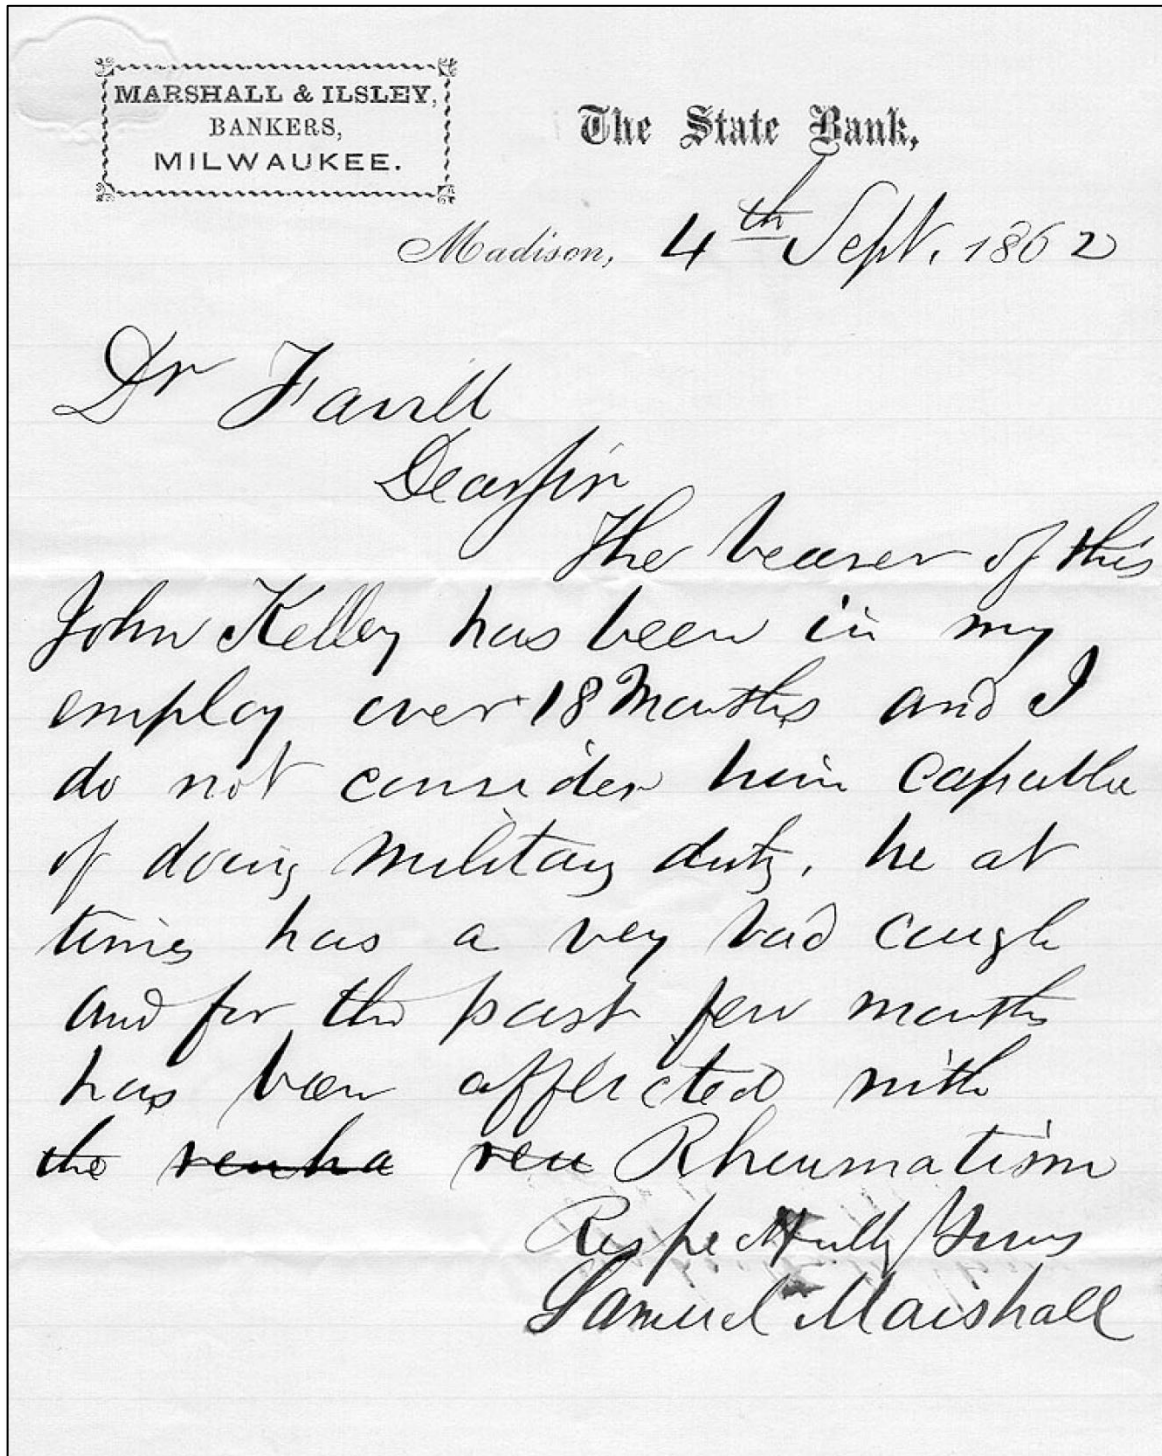 MARSHALL & ILSLEY,
BANKERS,
MILWAUKEE.
The State Bank,
Madison, 4th Sept. 1862
Dr
Dear Sir
The bearer of this
John Kelley has been in my
employ over 18 Months and I
do not consider him capable
of doing Military duty. he at
times has a very bad cough
and for the past few months
has been afflicted with
the Rheumatism
Respectfully Yours
Samuel Marshall